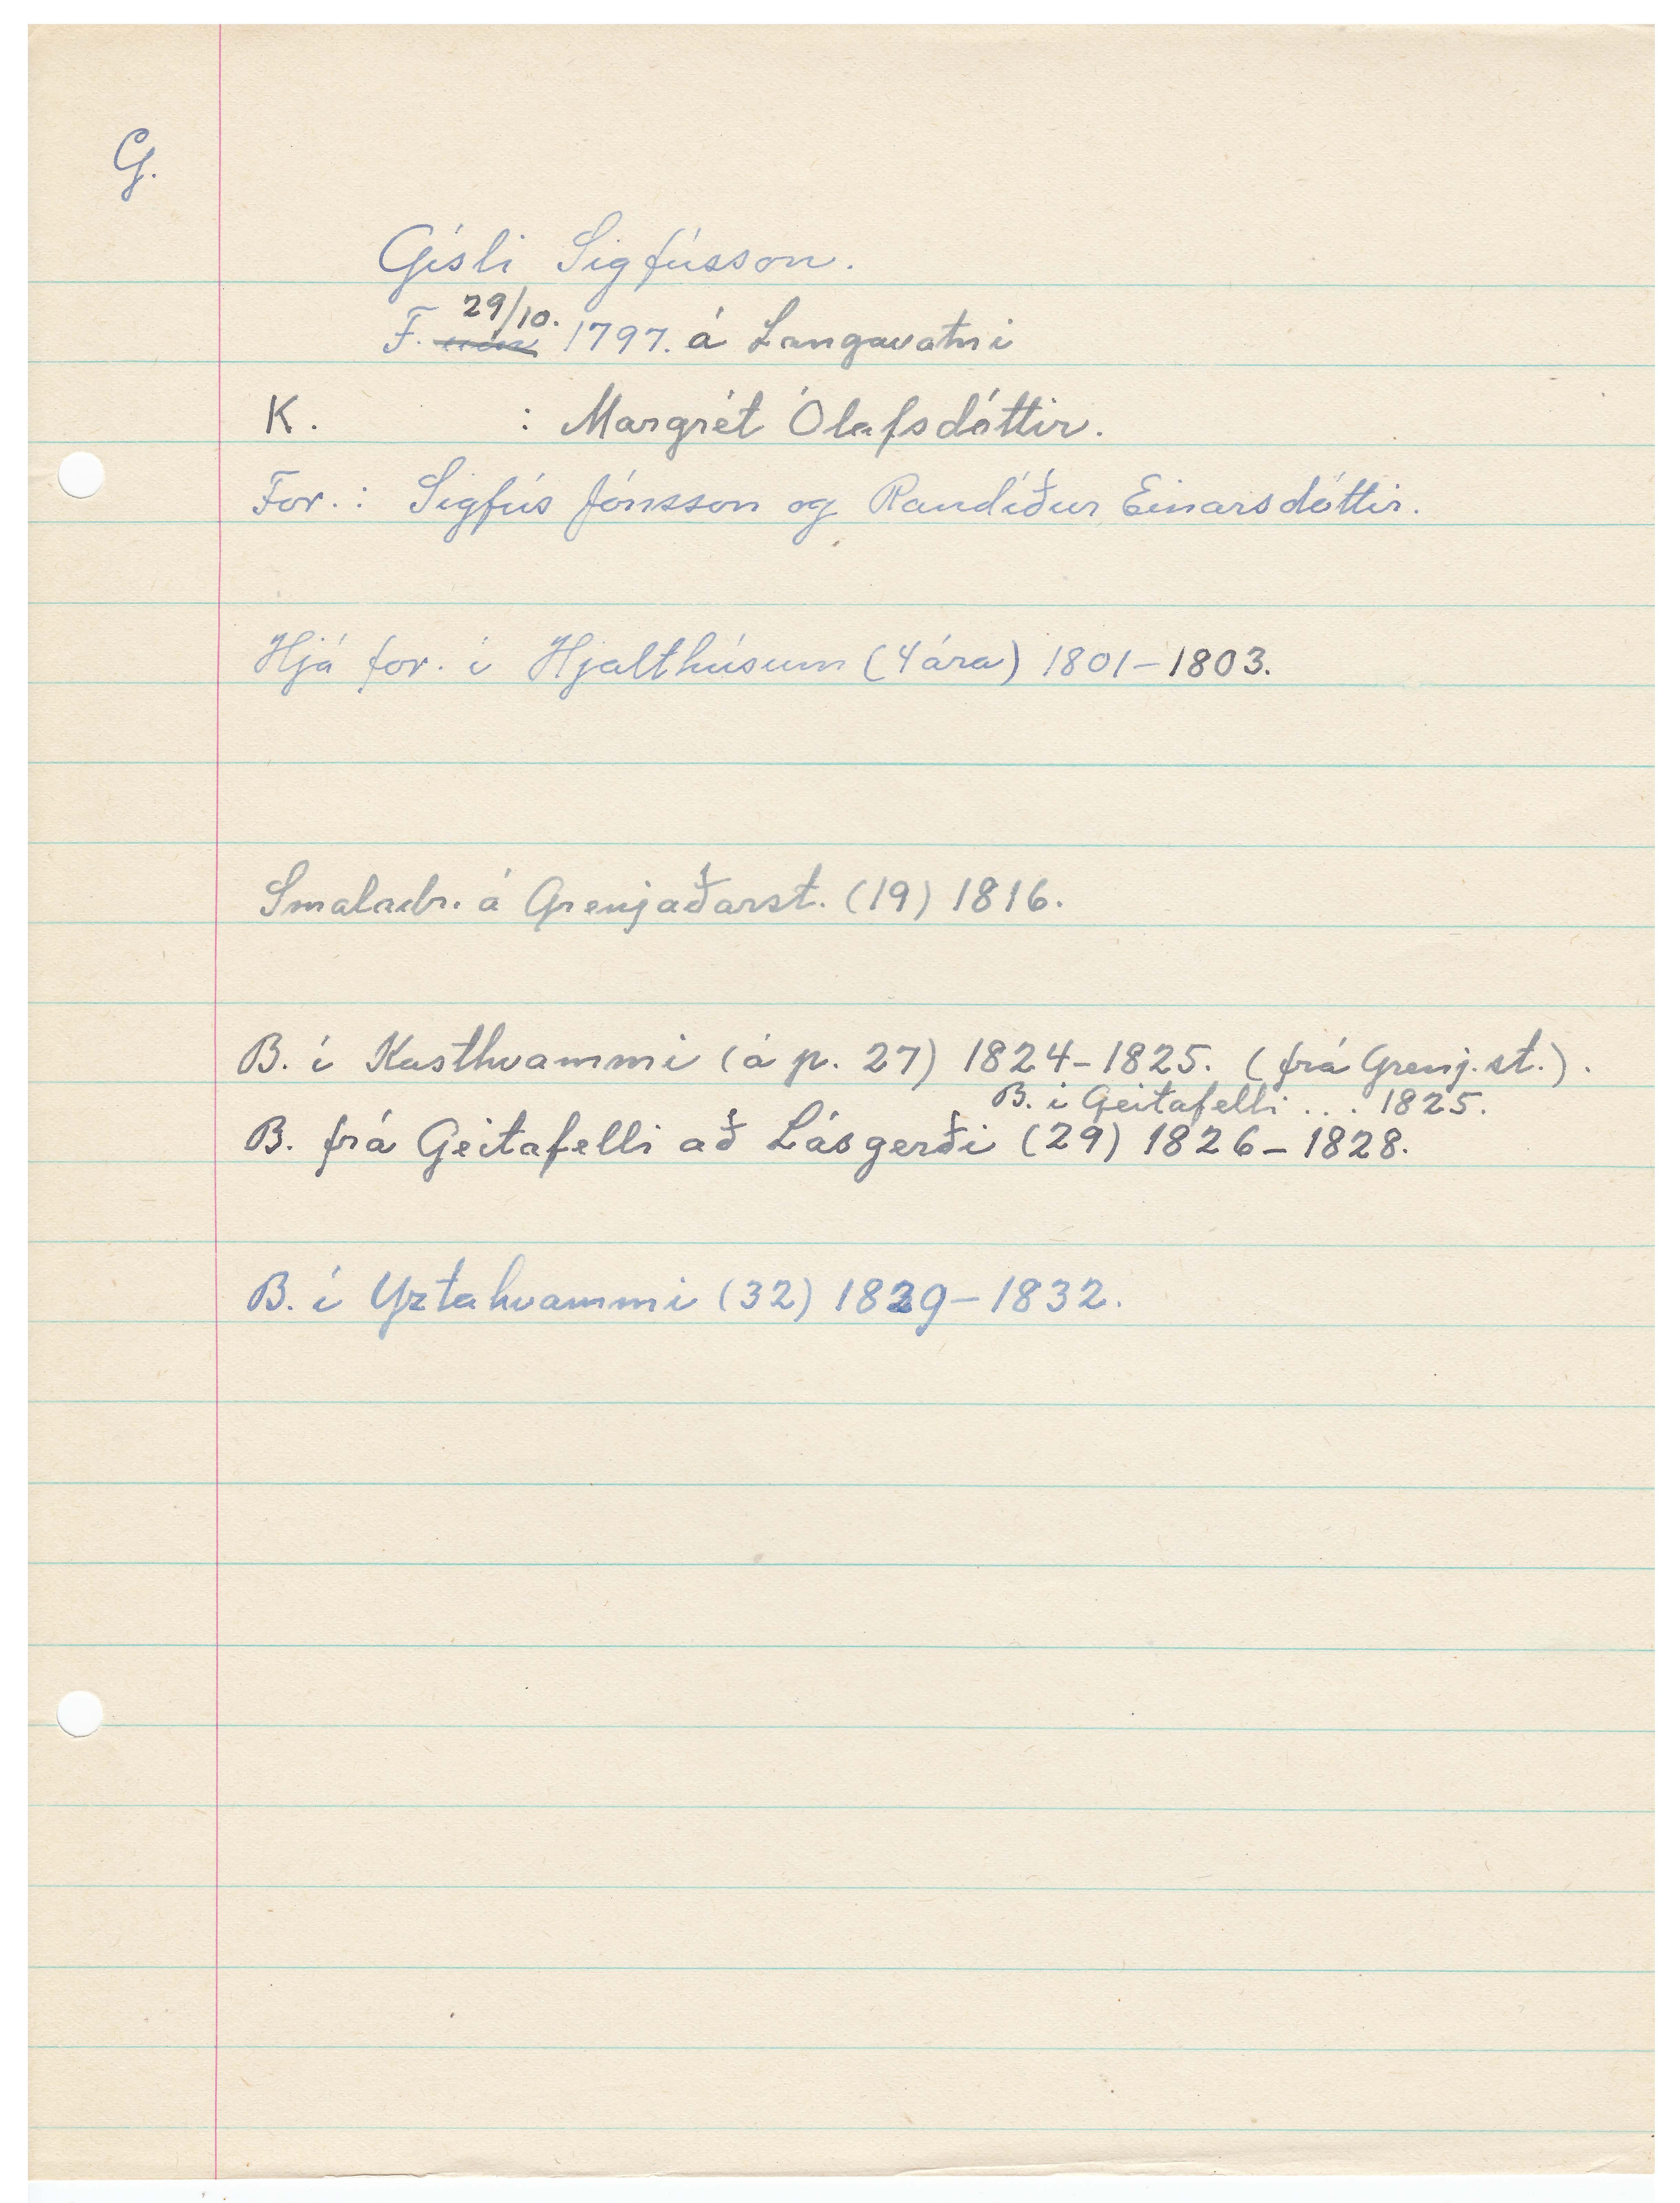 G.
Gísli Sigfússon.
29/10.
F. 1797. á Langavatni
K. : Margrét Ólafsdóttir.
For.: Sigfús Jónsson og Randíður Einarsdóttir.
Hjá for. í Hjalthúsum (4 ára) 1801-1803.
Smaladr. á Grenjaðarst. (19) 1816.
B. í Kasthvammi (á p. 27) 1824-1825. (frá Grenj.st.).
B. í Geitafelli ... 1825.
B. frá Geitafelli að Lásgerði (29) 1826-1828.
B. í Yztahvammi (32) 1829-1832.